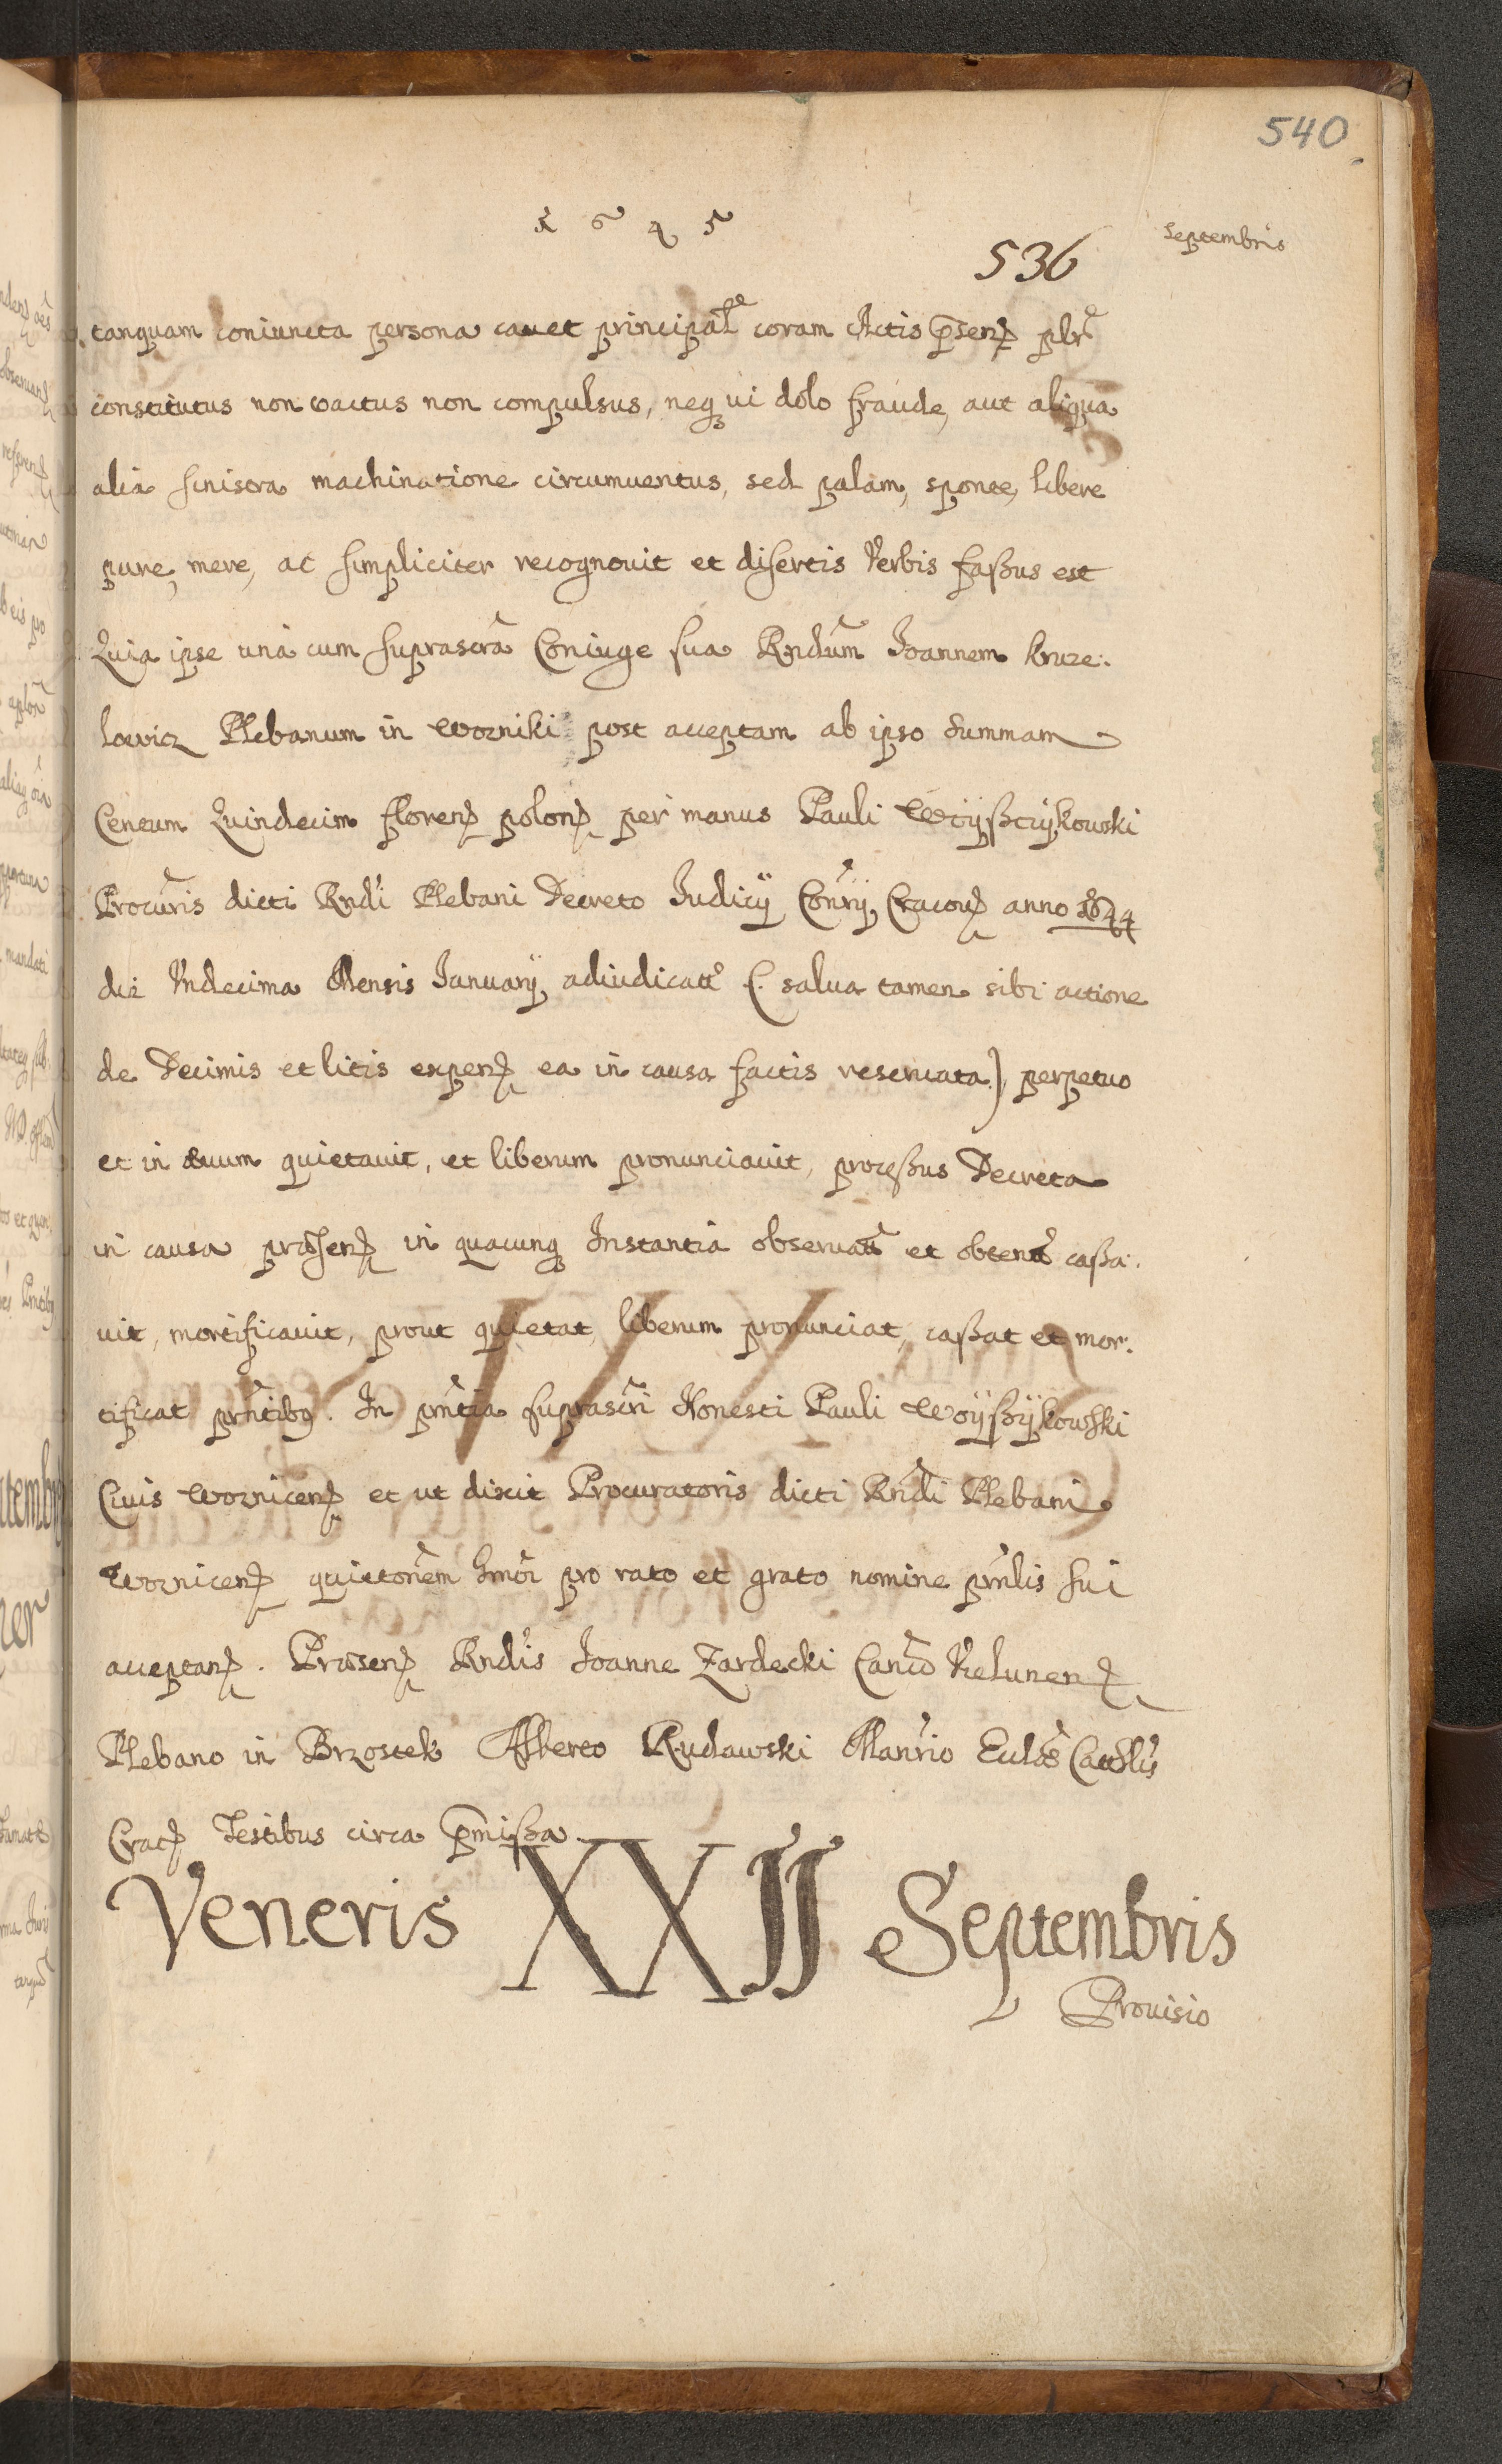 540
1645
Septembris
536
tanquam coniuncta persona cauet principalr coram Actis p̄sen plr̃
constitutus non coactus non compulsus, neq ui dolo fraude, aut aliqua
alia sinistra machinatione circumuentus, sed palam, sponte, libere
pure, mere, ac simpliciter recognouit et disertis Verbis faßus est
Quia ipse una cum suprascrã Coniuge sua Rndũm Joannem kruze:
lowicz Plebanum in Wozniki post acceptam ab ipso summam
Centum Quindecim floren polon per manus Pauli
Procũris dicti Rndi Plebani Decreto Judicÿ Conr̃ij Cracou anno 1644
die Vndecima Mensis Januarÿ adiudicat (: salua tamen sibi actione
de Decimis et litis expen ea in causa factis reseruata:) perpetuo
et in æuum quietauit, et liberum pronunciauit, proceßus Decreta
in causa præsen in quacunq Instantia obseruat et obtent caßa:
uit, mortificauit, prout quietat, liberum pronunciat, caßat et mor:
tificat prñtibq. In prñtia suprascri Honesti Pauli Woÿßÿkowski
Ciuis Woznicen et ut dixit Procuratoris dicti Rndi Plebani
Woznicen quietonẽm hmõi pro rato et grato nomine prñlis sui
acceptan. Præsen Rndis Joanne Zardecki Canco Vielunen
Plebano in Brzostek Alberto Rudawski Manrio Eccläe Cathlis
Crac Testibus circa p̄mißa.
Veneris XXII Septembris
Prouisio